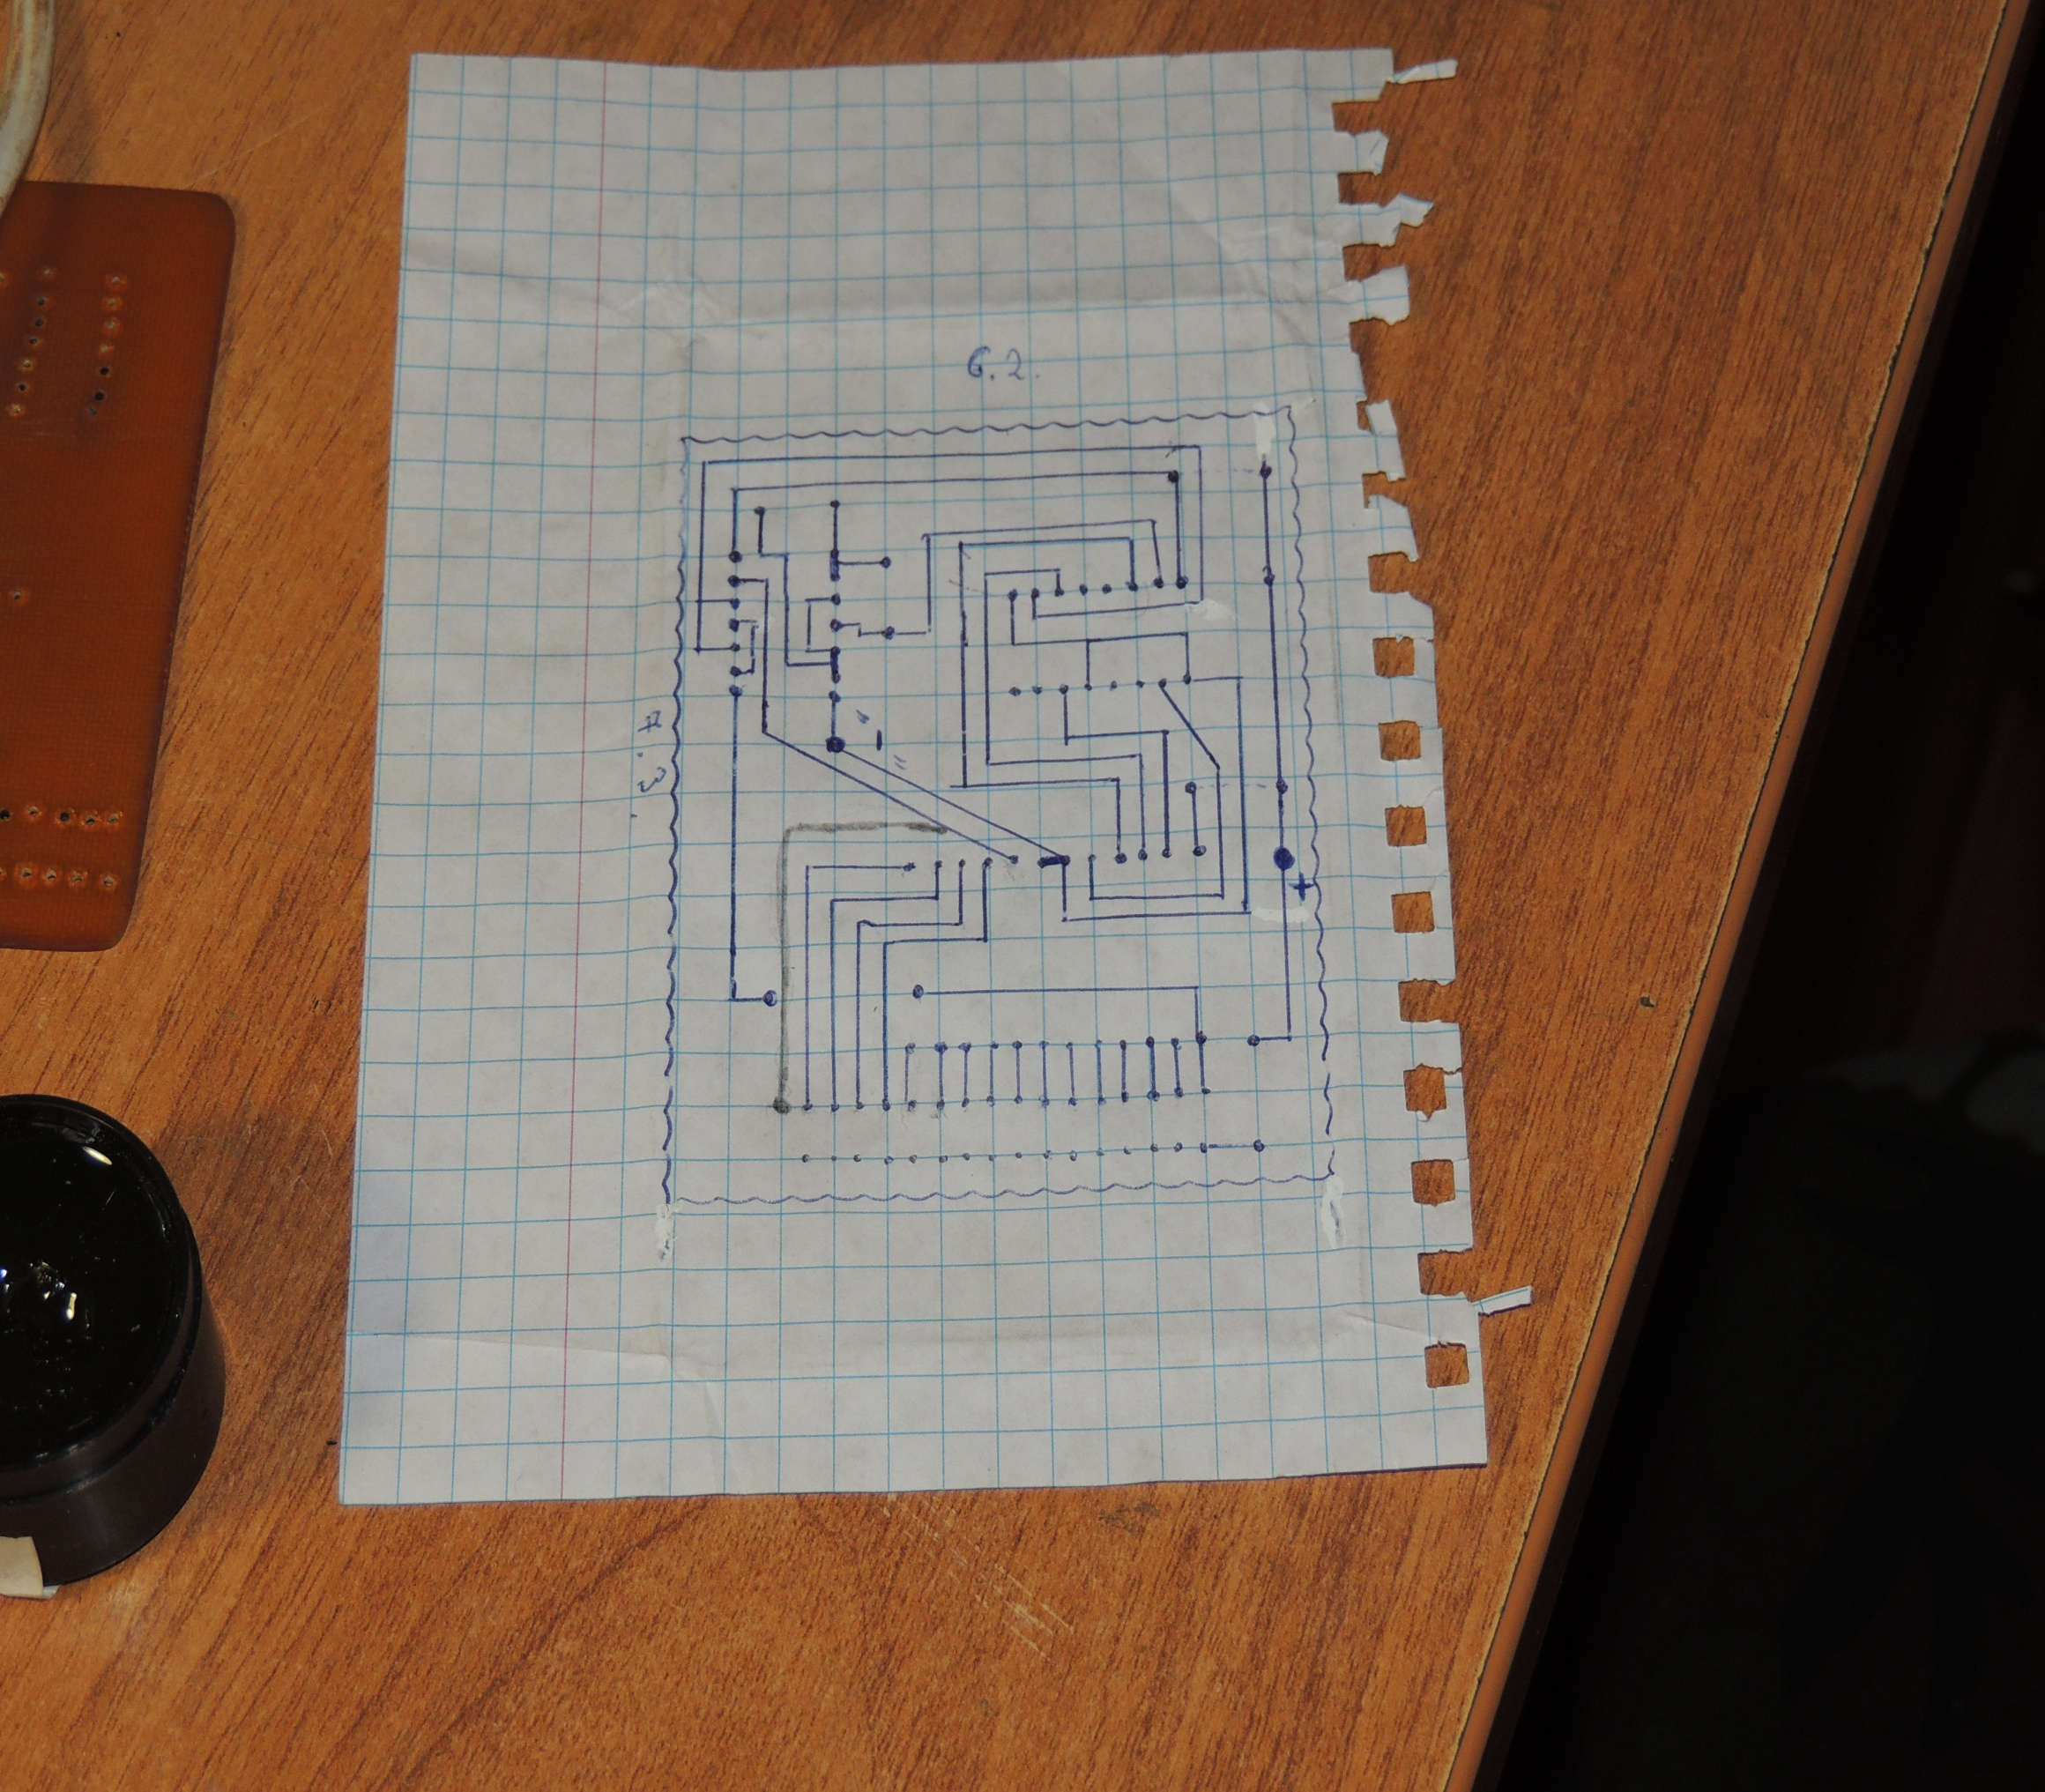 6.2.
7.3
"-"
+